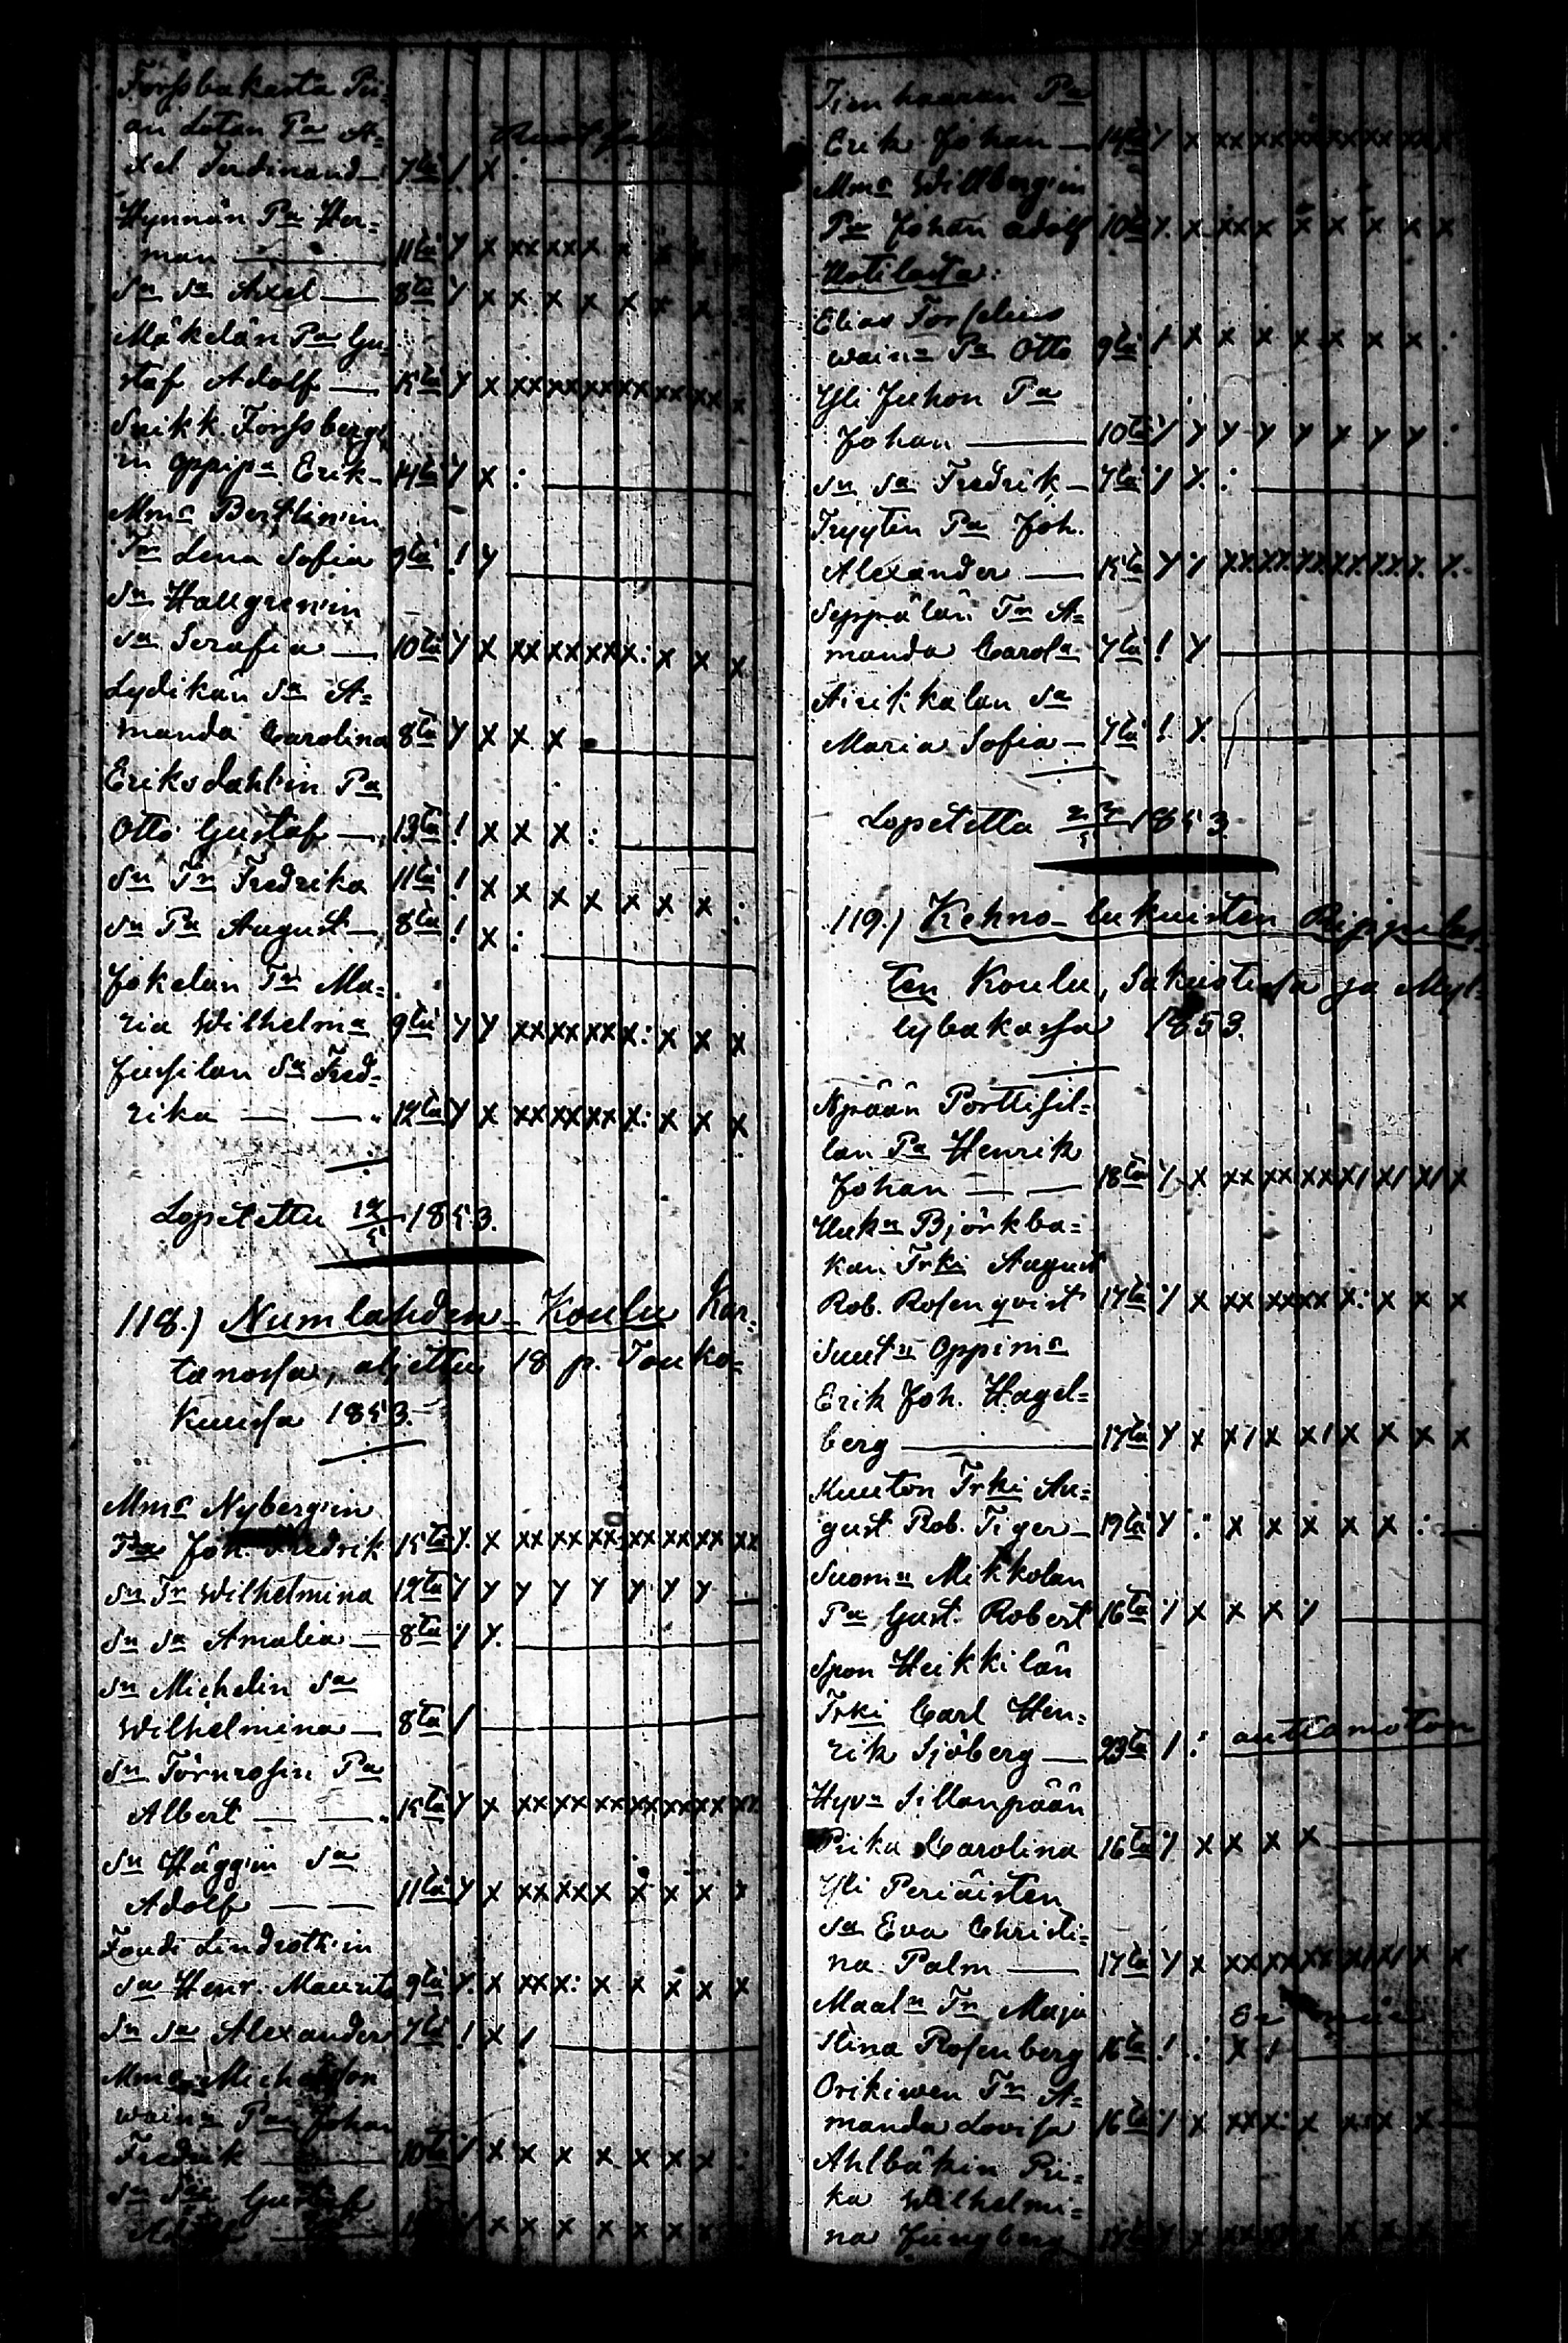 Forssbackasta Pii-
an Lotan Pa A=
xel Ferdinand 7tä ! x :
Hynnän Pa Her=
man 11tä y x xx xx x x x x x
Sn Sa Axel 8ta y x x x x x x x
Mäkelän Pa Gu-
staf Adolf 15tä y x xx xx xx xx xx xx x
Seikk. Forssbergi
in oppipa Erik 14tä y x :
Mms Berklin'in
Tr Lena Sofia 9tä ! y
Sn Hallgren'in
Sa Serafia 10tä y x xx xx xx x: x x x
Lydikän Sa A=
manda Carolina 8ta y x x x
Eriksdahl'in Pa
Otto Gustaf 13ta ! x x x :
Sn Tr Fredrika 11tä ! x x x x x x x :
Sn Pa August 8ta ! x :
Jokelan Tr Ma=
ria Wilhelma 9tä y y xx xx xx x: x x x
Jussilan Sa Fred=
rika 12ta y x xx xx xx x: x x x
Lopetettu 12/5 1853.
118.) Numlahden Koulu Kar=
tanossa, aljettu 18 p. Touko=
kuussa 1853.
Mms Nyberg'in
Pa Joh. Fredrik 15ta y x xx xx xx xx xx xx xx
Sn Tr Wilhelmina 12ta y y y y y y y y
Sn Sa Amalia 8ta y y.
Sn Michelin Sa
Wilhelmina 8ta /
Sn Törnrosin Pa
Albert 15ta y x xx xx xx xx xx xx xx
Sn Häggin Sa
Adolf 11tä y x xx xx x x x x x
Foudi Lindroth'in
Sa Henr. Maurits 9tä y x xx x: x x x x x
Sn Sa Alexander 7tä ! x /
Mms Michelson
wain: Pa Johan
Fredrik 10ta y x x x x x x x :
Sn Sa Gustaf
Adolf y x x x x x x x
Jernhaaran Pa
Erik Johan 14ta y x xx xx xx xx xx xx x
Mms Willberg'in
Pa Johan Adolf 10ta y x xx x x x x x x
Kotilasta:
Elias Forselius
wain: Pa Otto 9tä / x x x x x x x :
Yli Juhon Pa
Johan 10ta y y y y y y y y :
Sn Sa Fredrik 7tä y y :
Tryyten Pa Joh.
Alexander 15ta y y xx xx xx xx xx xx x.
Seppälän Tr A=
manda Carola 7tä ! y
Airikkalan Sa
Maria Sofia 7tä ! y.
Lopetettu 27/5 1853
119.) Kehno-lukuisten Rippilas=
ten Koulu, Sakastissa ja Myl=
lybakassa 1853.
Npään Porttisil=
lan Pa Henrik
Johan 18ta y x xx xx xx x/ x/ x/ x
Huk: Björkba=
kan Trki August
Rob. Rosenqvist 17tä y x xx xx xx x: x x x
Suut: Oppims
Erik Joh. Hagel=
berg 17tä y x x/ x x/ x x x x
Kuuton Trki Au=
gust Rob. Tiger 19tä y : x x x x x :
Suom: Mikkolan
Pa Gust. Robert 16ta y x x x y
Spon Heikkilän
Trki Carl Hen=
rik Sjöberg 23ta / : auttamaton
Hyv: Sillanpään
Piika Carolina 16ta y x x x x
Yli Periäisten
Sa Eva Christi=
na Palm 17tä y x xx xx xx x/ x/ x x
Maal: Tr Maja
Stina Rosenberg 16ta ! : x /
Orikiwen Tr A=
manda Lovisa 16ta y x xx x: x x x x
Ahlbäkin Pii=
ka Wilhelmi=
na Ljungberg 17tä y x xx x/ x x x x